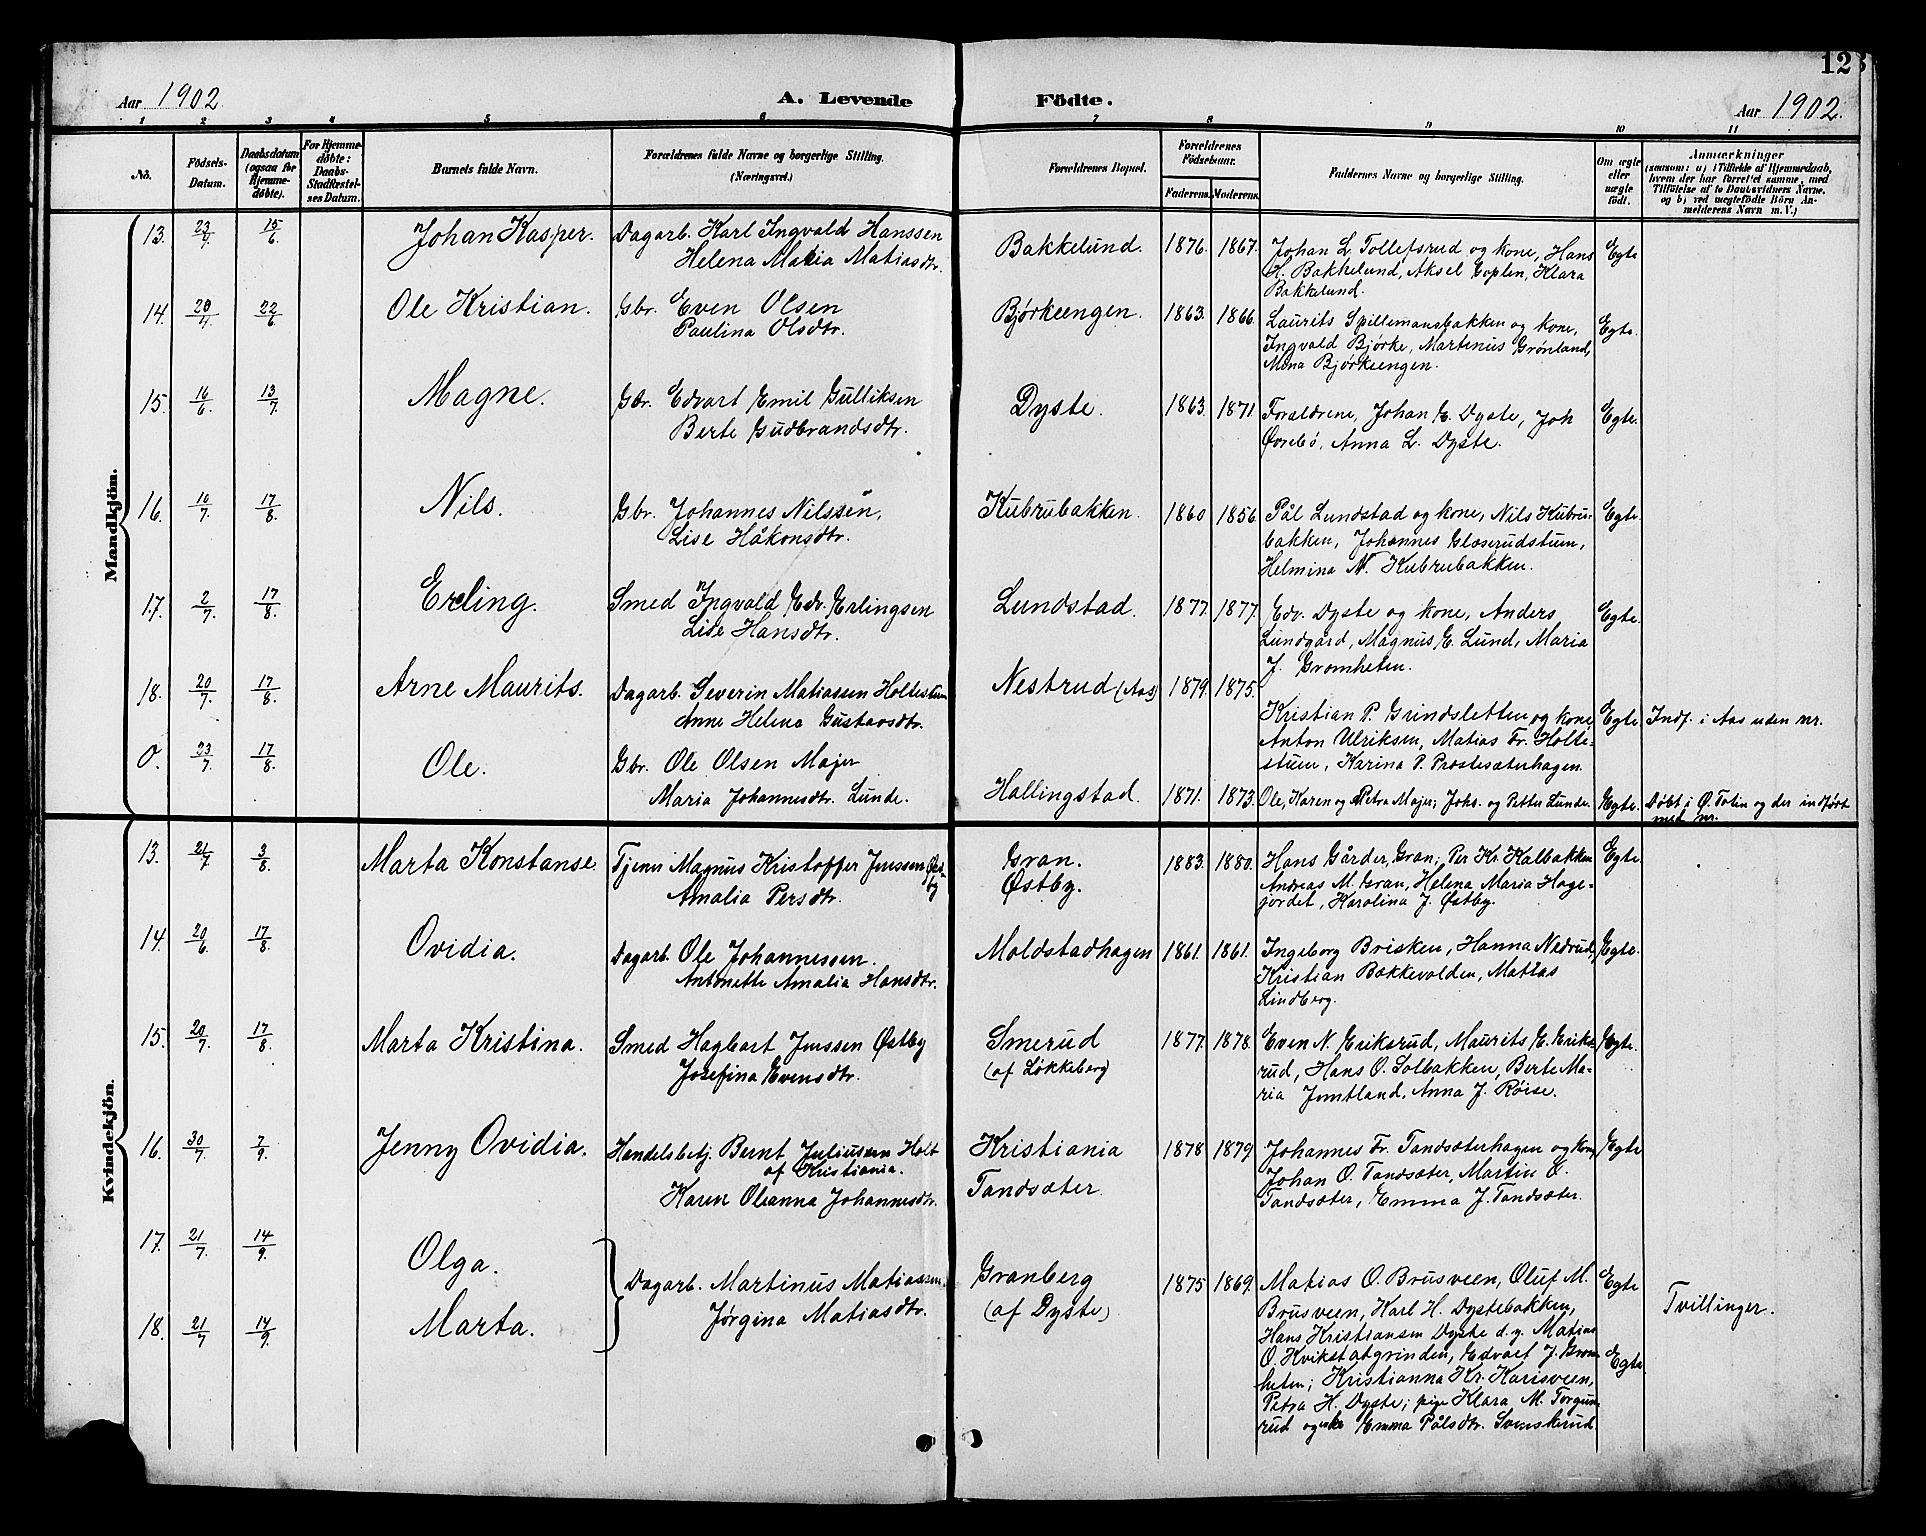 128
Aar 1902
A. Levende
Födte.
Aar 1902.
1 2 3 4 5 6 7 8 9 10 11
No.
Födsels-
Datum.
Daabsdatum
(ogsaa for
Hjemme-
døbte).
For Hjemme-
døbte:
Daabs-
Stadfæstel-
ses Datum.
Barnets fulde Navn.
Forældrenes fulde Navne og borgerlige Stilling.
(Næringsvei.)
Forældrenes Bopæl.
Forældrenes
Födselsaar.
Faderens. Moderens.
Faddernes Navne og borgerlige Stilling.
Om ægte
eller
uægte
födt.
Anmærkninger
(saasom: a) i Tilfælde af Hjemmedaab,
hvem der har forrettet samme, med
Tilføielse af to Daabsvidners Navne,
og b) ved uægtefødte Börn An-
melderens Navn m. V.)
Mandkjön.
13. 23/4 15/6 Johan Kasper. Dagarb. Karl Ingvald Hanssen
Helena Maria Matiasdtr.
Bakkelund. 1876. 1867. Johan L. Tollefsrud og kone, Hans
H. Bakkelund, Aksel Coplen, Klara
Bakkelund.
Egte
14. 20/4 22/6 Ole Kristian. Gbr. Even Olsen
Paulina Olsdtr.
Bjørkeengen. 1863. 1866. Laurits Spillemansbakken og kone,
Ingvald Bjørke, Martinus Grønland,
Mina Bjørkeengen.
Egte.
15. 16/6 13/7 Magne. Gbr. Edvart Emil Gulliksen
Berte Gudbrandsdtr.
Dyste. 1863. 1871 Forældrene, Johan E. Dyste, Joh
Ørsebø, Anna L. Dyste.
Egte.
16. 10/7 17/8 Nils. Gbr. Johannes Nilssen,
Lise Håkonsdtr.
Kubrubakken. 1860 1856. Pål Lundstad og kone, Nils Kubru-
bakken, Johannes Glæserudstuen,
Helmina N. Kubrubakken.
Egte.
17. 2/7 17/8 Erling. Smed Ingvald Edv. Erlingsen
Lise Hansdtr.
Lundstad. 1877. 1877. Edv. Dyste og kone, Anders
Lundgård, Magnus E. Lund, Maria
J. Gromheten.
Egte.
18. 20/7 17/8 Arne Maurits. Dagarb. Severin Matiassen Holtestuen
Anne Helena Gustavsdtr.
Nestrud (Aas) 1879. 1875.
Kristian P. Grindsletten og kone
Anton Ulriksen, Matias Fr. Holte-
stuen, Karina P. Prestesæterhagen.
Egte. Indf. i Aas uden nr.
0. 23/7 17/8 Ole. Gbr. Ole Olsen Majer
Maria Johannesdtr. Lunde.
Hallingstad. 1871. 1873. Ole, Karen og Petra Majer; Johs. og Petter Lunde. Egte. Døbt i Ø. Toten og der indført
med nr.
Kvindekjön.
13. 21/7 3/8 Marta Konstanse. Tjener Magnus Kristoffer Jenssen Øst-
by
Amalia Persdtr.
Gran.
Østby.
1883. 1880. Hans Gårder, Gran; Per Kr. Kalbakken
Andreas M. Gran, Helena Maria Hage-
jordet, Karolina J. Østby.
Egte
14. 20/6. 17/8. Ovidia. Dagarb. Ole Johannessen.
Antonette Amalia Hansdtr.
Moldstadhagen 1861. 1861. Ingeborg Brisken, Hanna Nedrud,
Kristian Bakkevolden, Matias
Lindberg.
Egte.
15. 20/7 17/8 Marta Kristina. Smed Hagbart Jenssen Østby
Josefina Evensdtr.
Smerud
(af Løkkeberg)
1877. 1878. Even N. Eriksrud, Maurits E. Eriks-
rud, Hans O. Solbakken, Berte Ma-
ria Jemtland, Anna J. Røise.
Egte.
16. 30/7 7/9. Jenny Ovidia. Handelsbetj. Bernt Juliussen Holt
af Kristiania.
Karen Oleanna Johannesdtr.
Kristiania
Tandsæter.
1878 1879 Johannes Fr. Tandsæterhagen og kone
Johan O. Tandsæter, Martin O.
Tandsæter, Emma J. Tandsæter.
Egte
17. 21/7. 14/9. Olga.
Dagarb. Martinus Matiassen
Jørgina Matiasdtr.
18. 21/7 14/9. Marta.
Granberg
(af Dyste)
1875 1869. Matias O. Brusveen, Oluf M.
Brusveen, Karl H. Dystebakken,
Hans Kristiansen Dyste d.y. Matias
O. Kvikstatgrinden, Edvart J. Grom-
heten; Kristianna Kr. Karisveen,
Petra H. Dyste; pige Klara M. Torgun-
rud og enke Emma Pålsdtr. Svenskerud
Egte
Egte
Tvillinger.